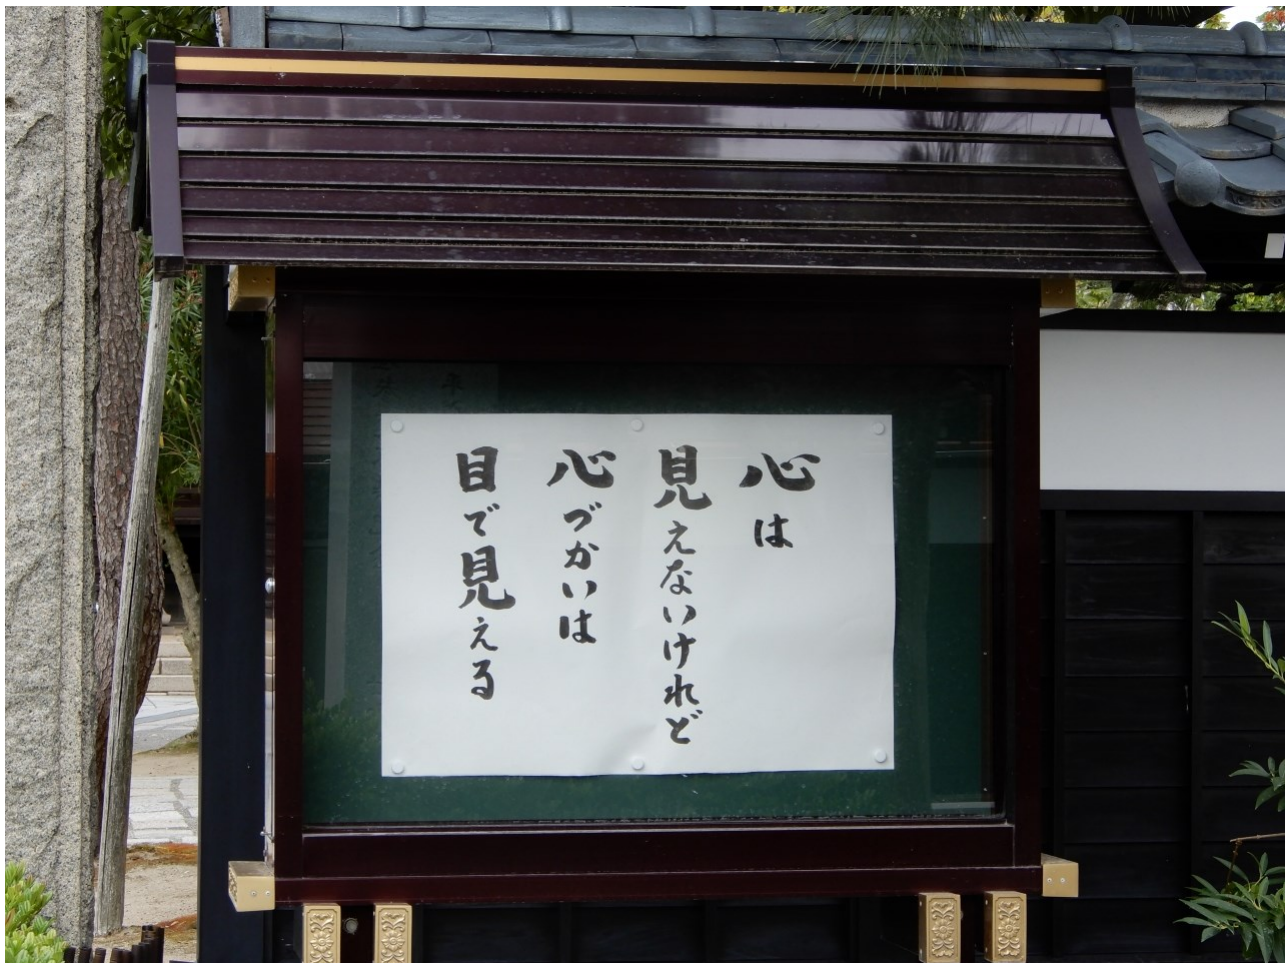 心は
見えないけれど
心づかいは
目で見える